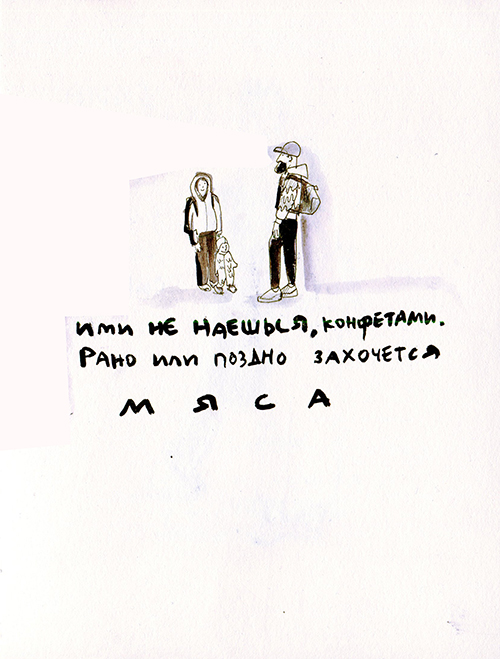 ИМИ НЕ НАЕШЬСЯ, КОНФЕТАМИ.
РАНО ИЛИ ПОЗДНО ЗАХОЧЕТСЯ
М Я С А